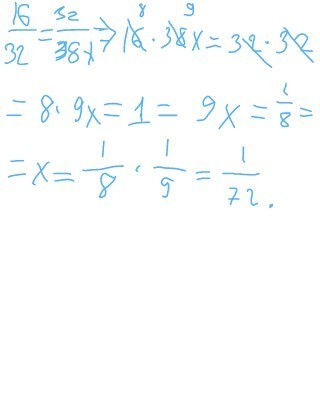 16/32 = 32/38x => 16 8 · 38 9 x = 32 · 32
= 8 · 9x = 1 = 9x = 1/8 =
= x = 1/8 · 1/9 = 1/72 .